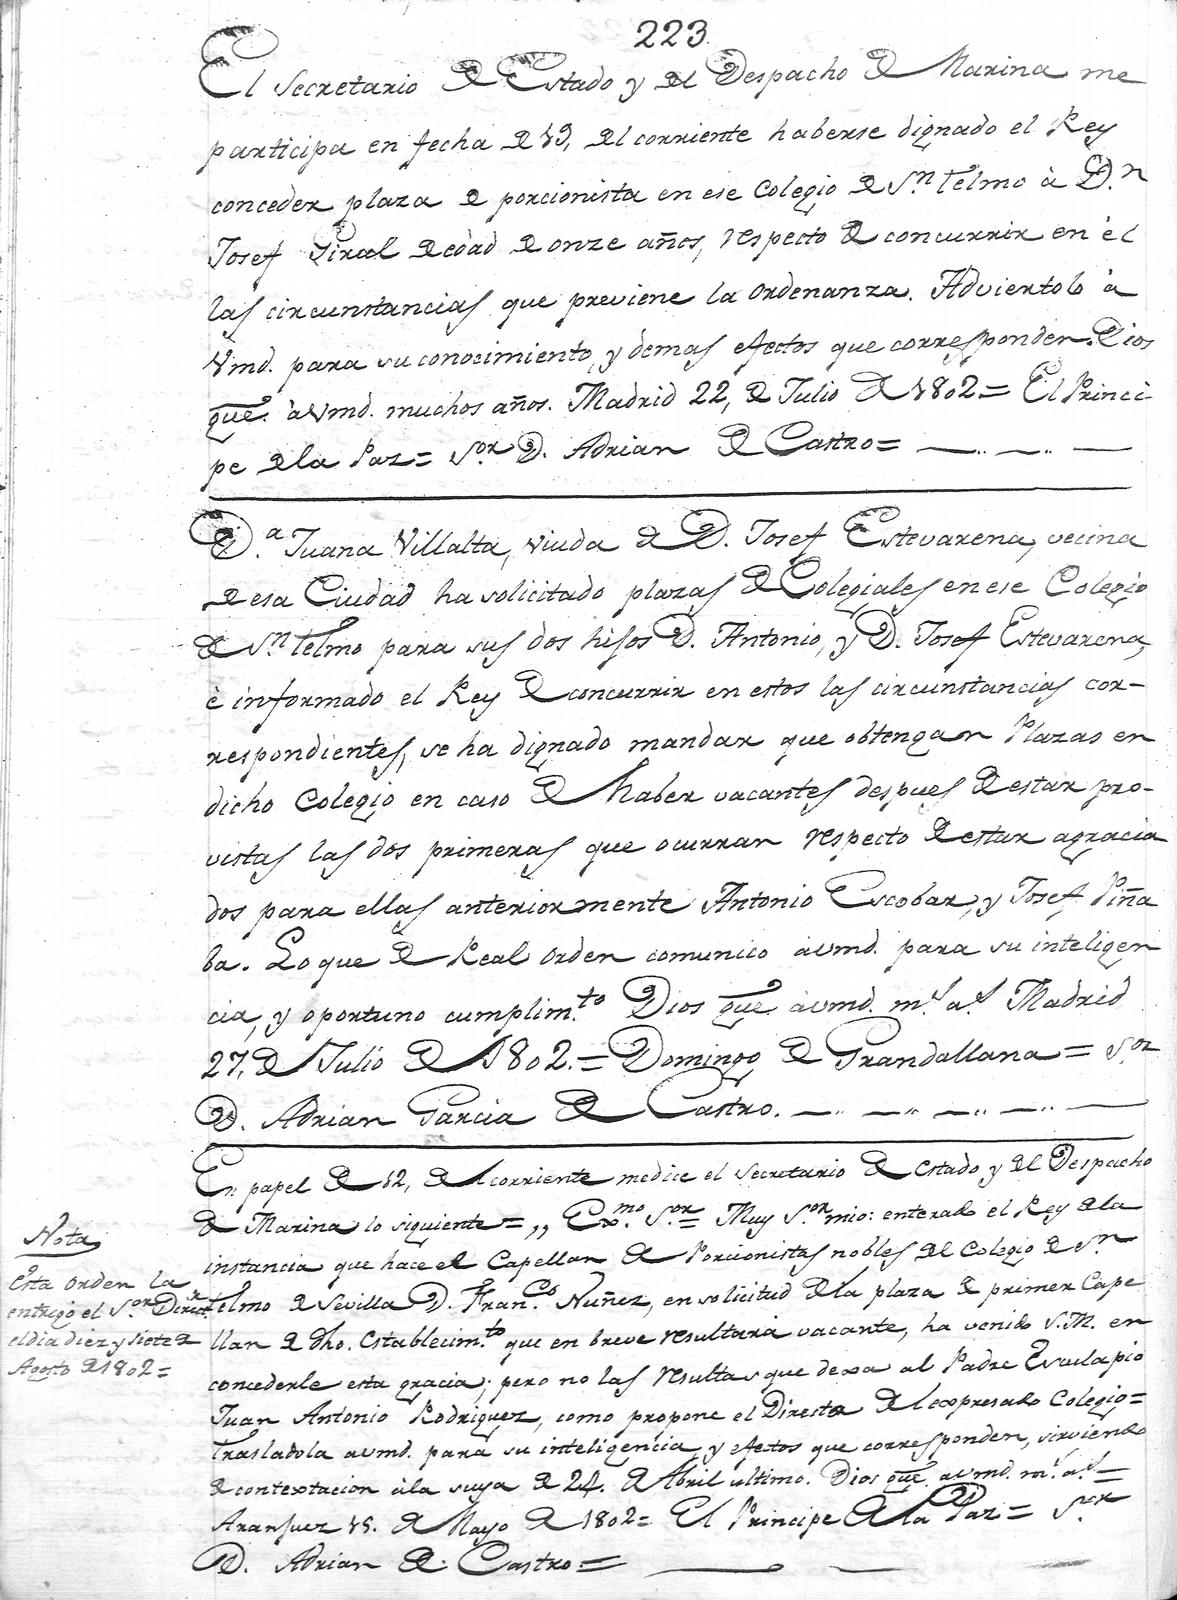 223
El Secretario de Estado y del Despacho de Marina me
participa en fecha de 19, del corriente haberse dignado el Rey
conceder plaza de porcionista en ese Colegio de Sn Telmo à Dn
Josef Piral de edad de onze años, respecto de concurrir en èl
las circunstancias que previene la ordenanza. Adviertolo à
Vmd. para su conocimiento, y demas efectos que corresponden. Dios
gue. à Vmd. muchos años. Madrid 22, de Julio de 1802= El Princi
pe de la Paz= Sor D. Adrian de Castro=
D.a Juana Villalta, viuda de D. Josef Estevarena, vecina
de esa Ciudad ha solicitado plazas de Colegiales en ese Colegio
de Sn Telmo para sus dos hijos D. Antonio, y D. Josef Estevarena,
è informado el Rey de concurrir en estos las circunstancias cor-
respondientes, se ha dignado mandar que obtengan Plazas en
dicho Colegio en caso de haber vacantes despues de estar pro-
vistas las dos primeras que ocurran respecto de estar agracia
dos para ellas anteriormente Antonio Escobar, y Josef Piña
ba. Lo que de Real orden comunico à vmd. para su inteligen
cia, y oportuno cumplim.to Dios gue. à vmd. m.s a.s Madrid
27, de Julio de 1802.= Domingo de Grandallana= S.or
D. Adrian Garcia de Castro.
En papel de 12, del corriente me dice el Secretario de Estado y del Despacho
de Marina lo siguiente= ,, Exmo. Sor= Muy Sor mio: enterado el Rey de la
instancia que hace el Capellan de Porcionistas nobles del Colegio de Sn
Telmo de Sevilla D. Fran.co Nuñez, en solicitud de la plaza de primer Cape
llan de dho. establecim.to que en breve resultarà vacante, ha venido S.M. en
concederle esta gracia; pero no las resultas que dexa al Padre Esculapio
Juan Antonio Rodriguez, como propone el Director del expresado Colegio=
Trasladola a vmd. para su inteligencia, y efectos que corresponden, sirviendo
de contextacion à la suya de 24. de Abril ultimo. Dios gue. a vmd. m.s a.s=
Aranjuez 15. de Mayo de 1802= El Principe de la Paz= Sor
D. Adrian de Castro=
Nota
Esta orden la
entregò el Sor Direct.r
el dia diez y siete de
Agosto de 1802=